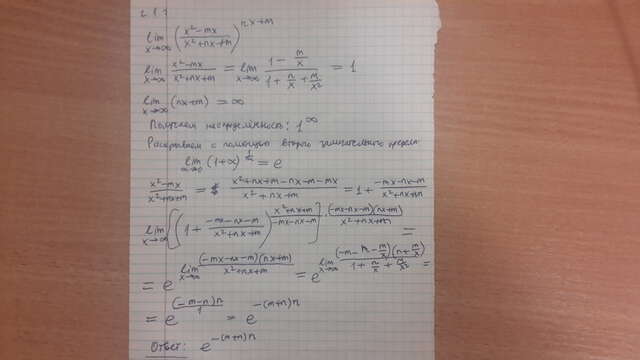 lim x→∞ ((x²-mx)/(x²+nx+m))^(nx+m)
lim x→∞ (x²-mx)/(x²+nx+m) = lim x→∞ (1 - m/x)/(1 + n/x + m/x²) = 1
lim x→∞ (nx+m) = ∞
Получаем неопределённость: 1^∞
Раскрываем с помощью второго замечательного предела
lim α→0 (1+α)^(1/α) = e
(x²-mx)/(x²+nx+m) = (x²+nx+m-nx-m-mx)/(x²+nx+m) = 1 + (-mx-nx-m)/(x²+nx+m)
lim x→∞ [(1 + (-mx-nx-m)/(x²+nx+m))^((x²+nx+m)/(-mx-nx-m))]^((-mx-nx-m)(nx+m)/(x²+nx+m)) =
= e^(lim x→∞ (-mx-nx-m)(nx+m)/(x²+nx+m)) = e^(lim x→∞ (-m-n-m/x)(n+m/x)/(1+n/x+m/x²)) =
= e^((-m-n)n/1) = e^(-(m+n)n)
Ответ: e^(-(m+n)n)